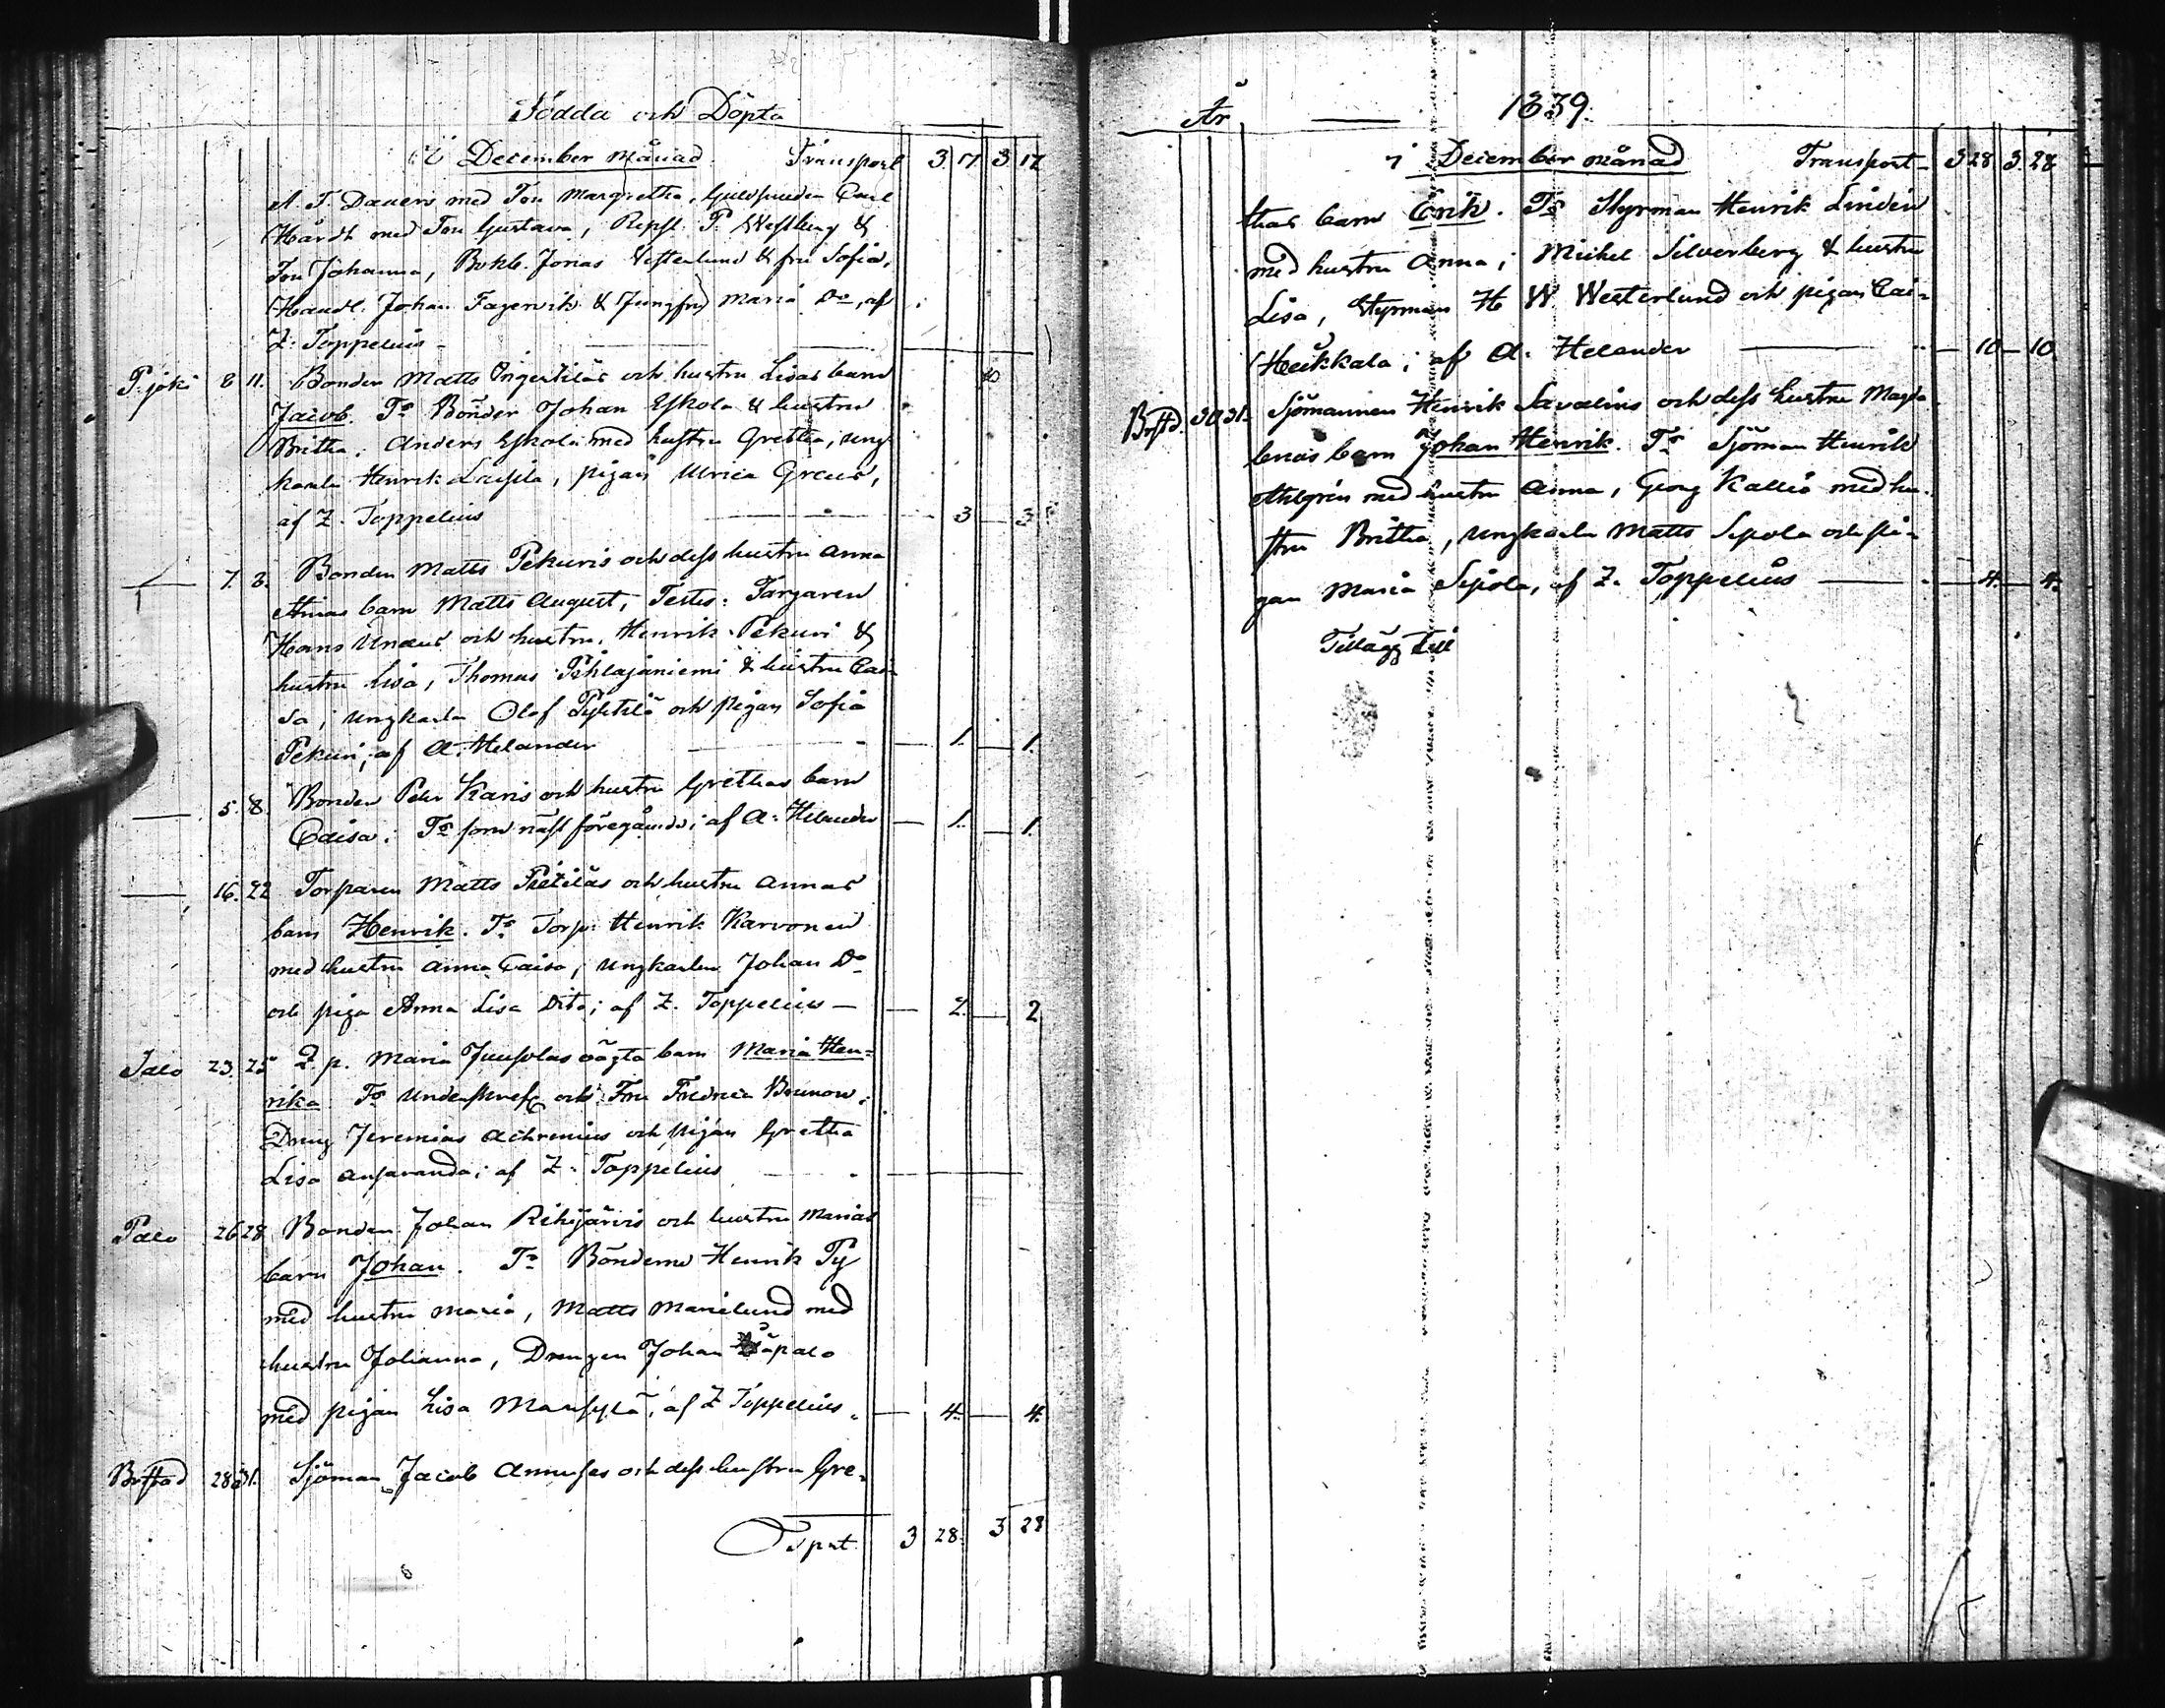 Födda och Döpta
i December månad Transport 3 17 3 17
A. F. Dauers med Fru Margretha, Guldsmeden Carl
Hårdh med Fru Gustava, P. Westberg &
Fru Johanna, Bokh. Jonas & fru Sofia,
Handl. Johan Fagervik & Jungfru Maria Do, af
Z. Toppelius
P.joki 8 11. Bonden Matts och hustru Lisas barn
Jacob. Ts Bönder Johan Eskola & hustru
Britha, Anders Eskola med hustru Gretha, ung
karln Henrik, pigan Ulrica
af Z. Toppelius 3 3
7. 8. Bonden Matts Pekuris och dess hustru Anna
barn Matts August, Testes: Färgaren
Hans och hustru, Henrik Pekuri &
hustru Lisa, Thomas Pihlajaniemi & hustru Cai-
sa; ungkarln Olof och pigan Sofia
Pekuri; af A. Helander 1. 1.
5. 8. Bonden Petter Karis och hustru Grethas barn
Caisa: Ts som näst föregående; af A. Helander 1. 1.
16. 22 Torparen Matts Pietiläs och hustru Annas
barn Henrik. Ts Torp. Henrik Karvonen
med hustru Anna Caisa, ungkarln Johan Do
och piga Anna Lisa Dito; af Z. Toppelius 2. 2
Salo 23. 25 Q. p. Maria Juusolas oägta barn Maria Hen-
rika Ts och Fru Fredrica Brunow,
Dreng Jeremias och pigan Gretha
Lisa; af Z. Toppelius
Palo 26 28 Bonden Johan och hustru Marias
barn Johan. Ts Bönderne Henrik Py
med hustru Maria, Matts Marielund med
hustru Johanna, Drengen Johan
med pigan Lisa, af Z Toppelius 4. 4.
Brstad 28 31. Sjöman Jacob Annuses och dess hustru Gre-
Tprt. 3 28. 3 28
År 1839.
i December månad Transport 3 28 3. 28
thas barn Erik. Ts Styrman Henrik Lindén
med hustru Anna; Michel Silverberg & hustru
Lisa, Styrman H W Westerlund och pigan Cai-
Heikkala; af A. Helander 10 10
Brstd. 30 31. Sjömannen Henrik Savalins och dess hustru Magda
lenas barn Johan Henrik. Ts Sjöman Henrik
Ahlgrén med hustru Anna, Georg Kallio med hu-
stru Britha, ungkarln Matts Sipola och pi-
gan Maria Sipola, af Z. Toppelius 4. 4.
Tillägg till